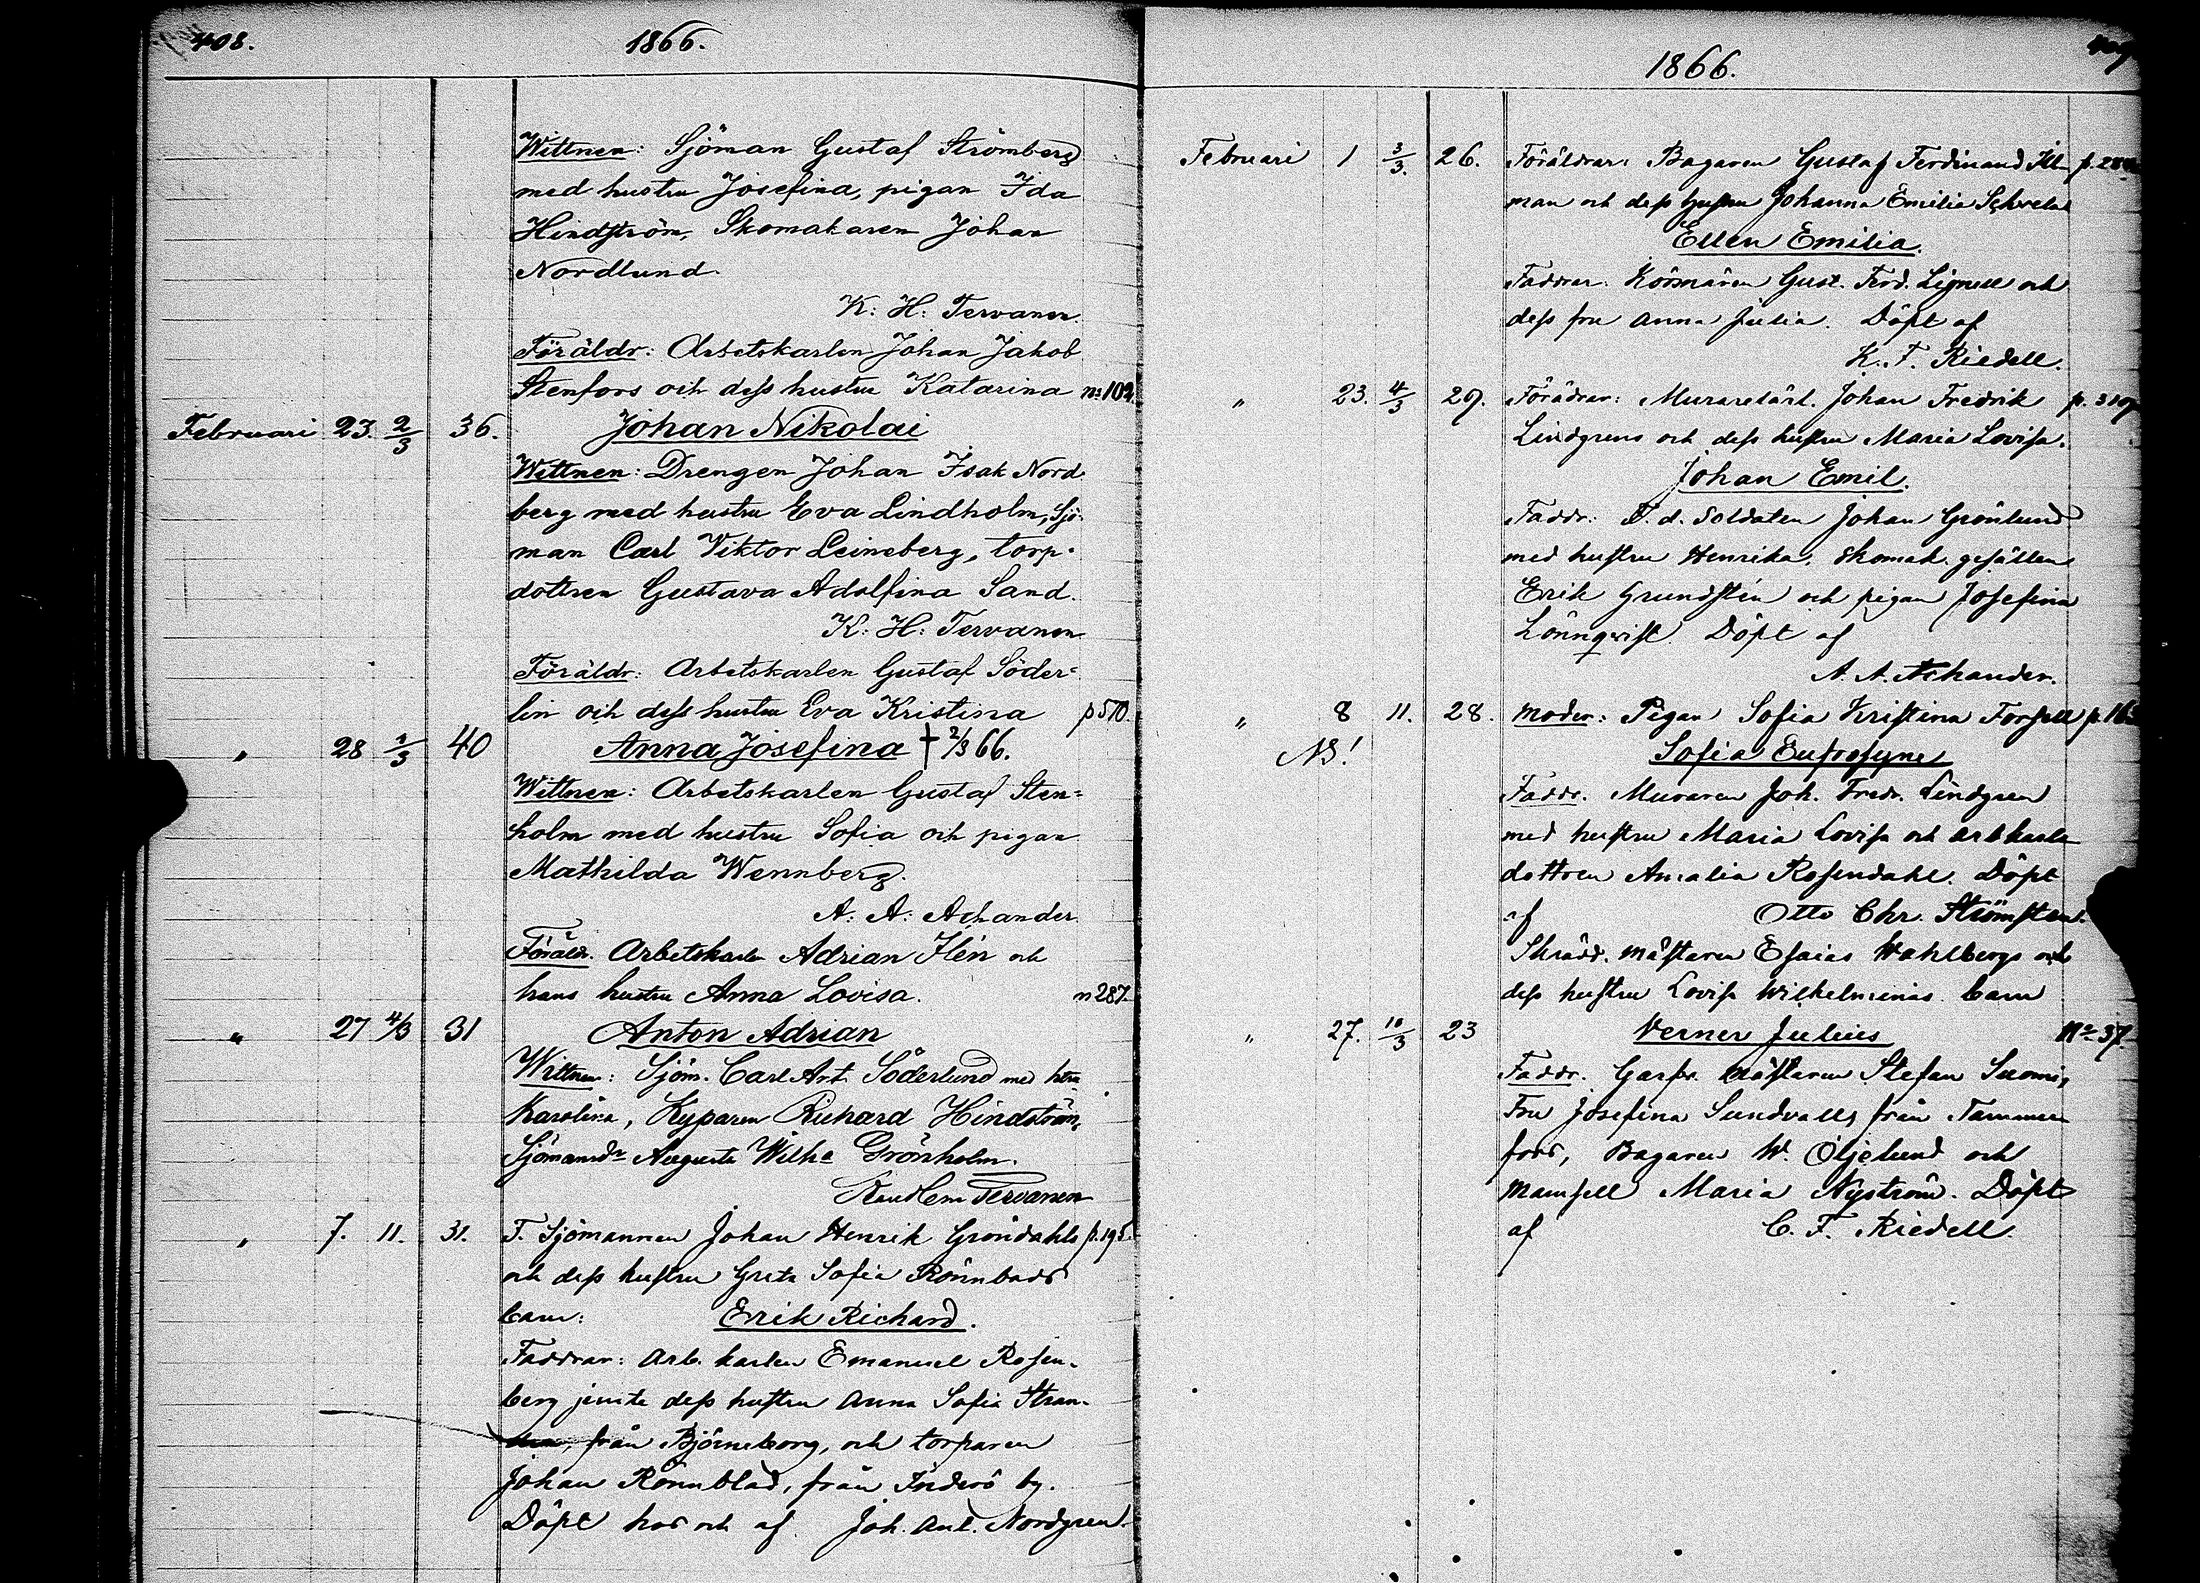 408.
1866.
Wittnen: Sjöman Gustaf Strömberg
med hustru Josefina, pigan Ida
Hindström, Skomakaren Johan
Nordlund.
K: H: Tervanen.
Föräldr: Arbetskarlen Johan Jakob
Stenfors och dess hustru Katarina no 102.
Februari 23. 2/3 36. Johan Nikolai
Wittnen: Drengen Johan Isak Nord
berg med hustru Eva Lindholm, Sjö-
man Carl Viktor Leineberg, torp-
dottren Gustava Adolfina Sand.
K: H: Tervanen
Föräldr: Arbetskarlen Gustaf Söder=
lin och dess hustru Eva Kristina p 570.
" 28 2/3 40 Anna Josefina † 2/3 66.
Wittnen: Arbetskarlen Gustaf Sten=
holm med hustru Sofia och pigan
Mathilda Wennberg.
A: A: Achander
Föräldr. Arbetskarlen Adrian Ilén och
hans hustru Anna Lovisa. n 287.
" 27 4/3 31 Anton Adrian
Wittnen: Sjöm. Carl Ant. Söderlund med htru
Karolina, Kyparen Richard Hindström,
Sjömansdr Augusta Wilha Grönholm.
Tervanen
" 7. 11. 31. F. Sjömannen Johan Henrik Gröndahls p. 195.
och dess hustru Greta Sofia Rönnbads
barn: Erik Richard.
Faddrar: Arb. karlen Emanuel Rosen-
berg jemte dess hustru Anna Sofia Stran-
från Björneborg, och torparen
Johan Rönnblad, från Inderö by.
Döpt hos och af Joh. Ant. Nordgren.
1866.
Februari 1 3/3. 26. Föräldrar: Bagaren Gustaf Ferdinand
man och dess hustru Johanna Emilia
Ellen Emilia.
Faddrar: Körsnären Gust. Ferd. Lignell och
dess fru Anna Julia. Döpt af
K. F. Riedell.
" 23. 4/3 29. Förädrar: Muraretärl. Johan Fredrik
Lindgrens och dess hustru Maria Lovisa.
Johan Emil.
Faddr: F. d. Soldaten Johan Grönlund
med hustru Henrika, skomak. gesällen
Erik Grundstén och pigan Josefina
Lönnqvist Döpt af
A. A. Achander.
" 8 11. 28. Moder: Pigan Sofia Kristina Forsell
NB! Sofia Eufrosyne
Faddr. Muraren Joh. Fredr. Lindgren
med hustru Maria Lovisa och arbkarls
dottren Amalia Rosendahl. Döpt
af Otto Chr. Strömsten.
Skrädd. mästaren Esaias Wahlbergs och
dess hustru Lovisa Wilhelminas barn
" 27. 10/3 23 Verner Julius No 37.
Faddr. Garfv. mästaren Stefan Suomi,
Fru Josefina Sundvall, från Tammer
fors, Bagaren W. Öljelund och
Mamsell Maria Nyström. Döpt
af C. F. Riedell.